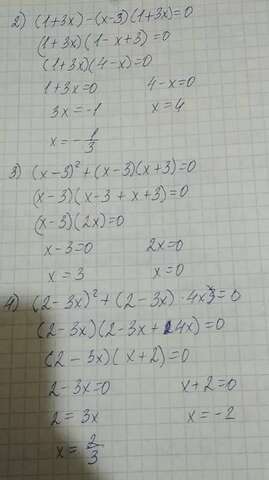 2) (1+3x)-(x-3)(1+3x)=0
(1+3x)(1-x+3)=0
(1+3x)(4-x)=0
1+3x=0 4-x=0
3x=-1 x=4
x=-1/3
3) (x-3)²+(x-3)(x+3)=0
(x-3)(x-3+x+3)=0
(x-3)(2x)=0
x-3=0 2x=0
x=3 x=0
4) (2-3x)²+(2-3x)·4x=0
(2-3x)(2-3x+4x)=0
(2-3x)(x+2)=0
2-3x=0 x+2=0
2=3x x=-2
x=2/3